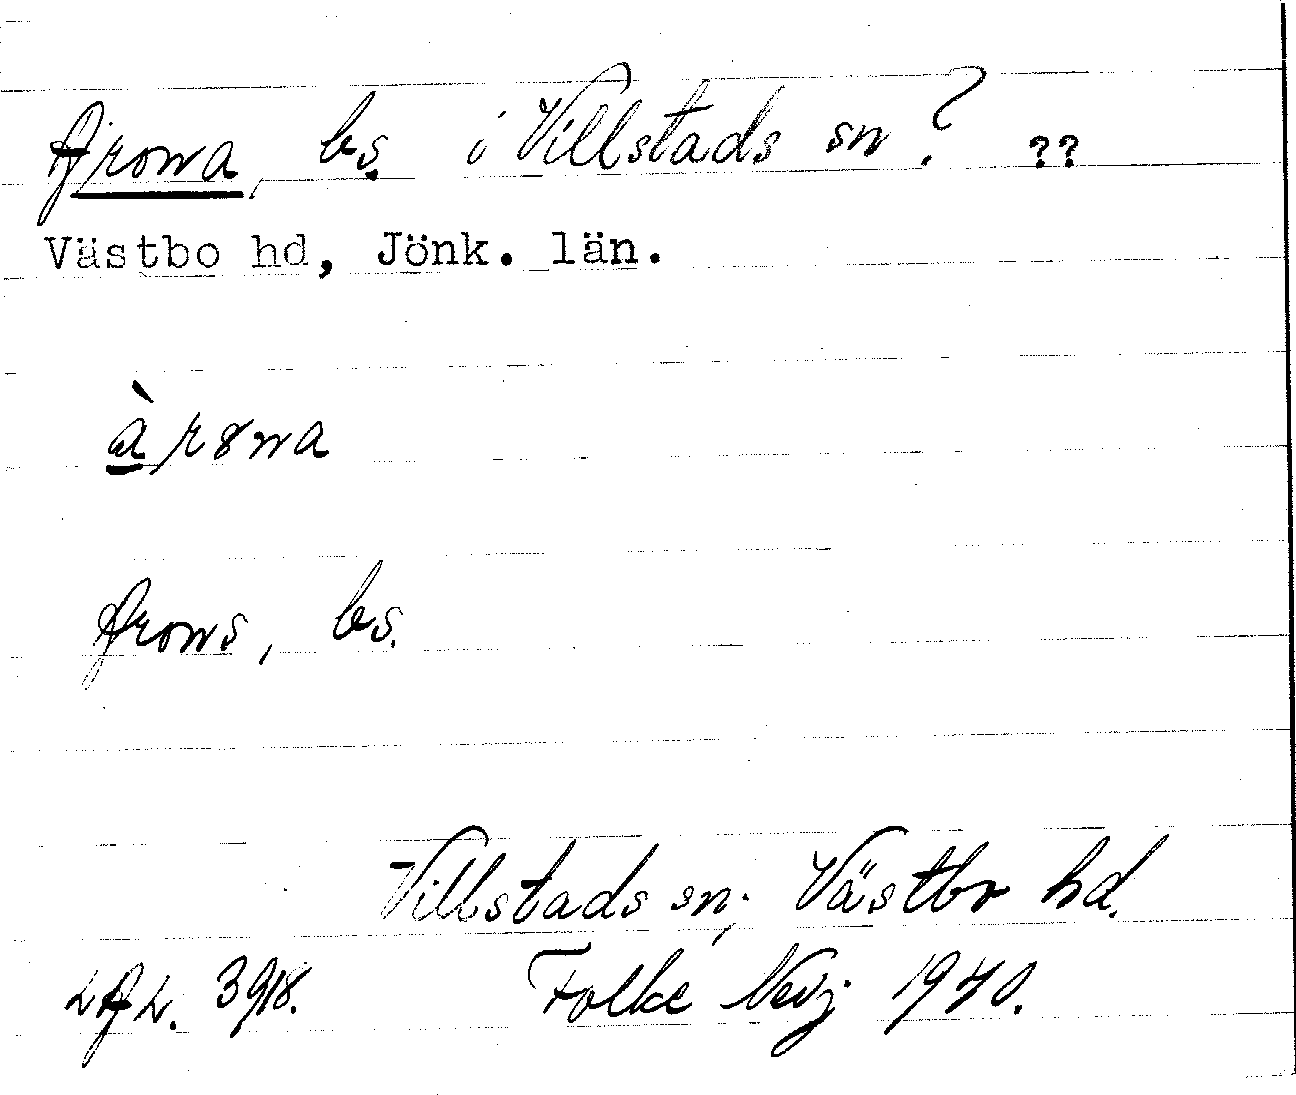 Arowa, bs. i Villstads sn? ??
Västbo hd, Jönk. län.
àrowa
Arows, bs.
Villstads sn; Västbo hd.
LAL. 3918. Folke Neij 1940.